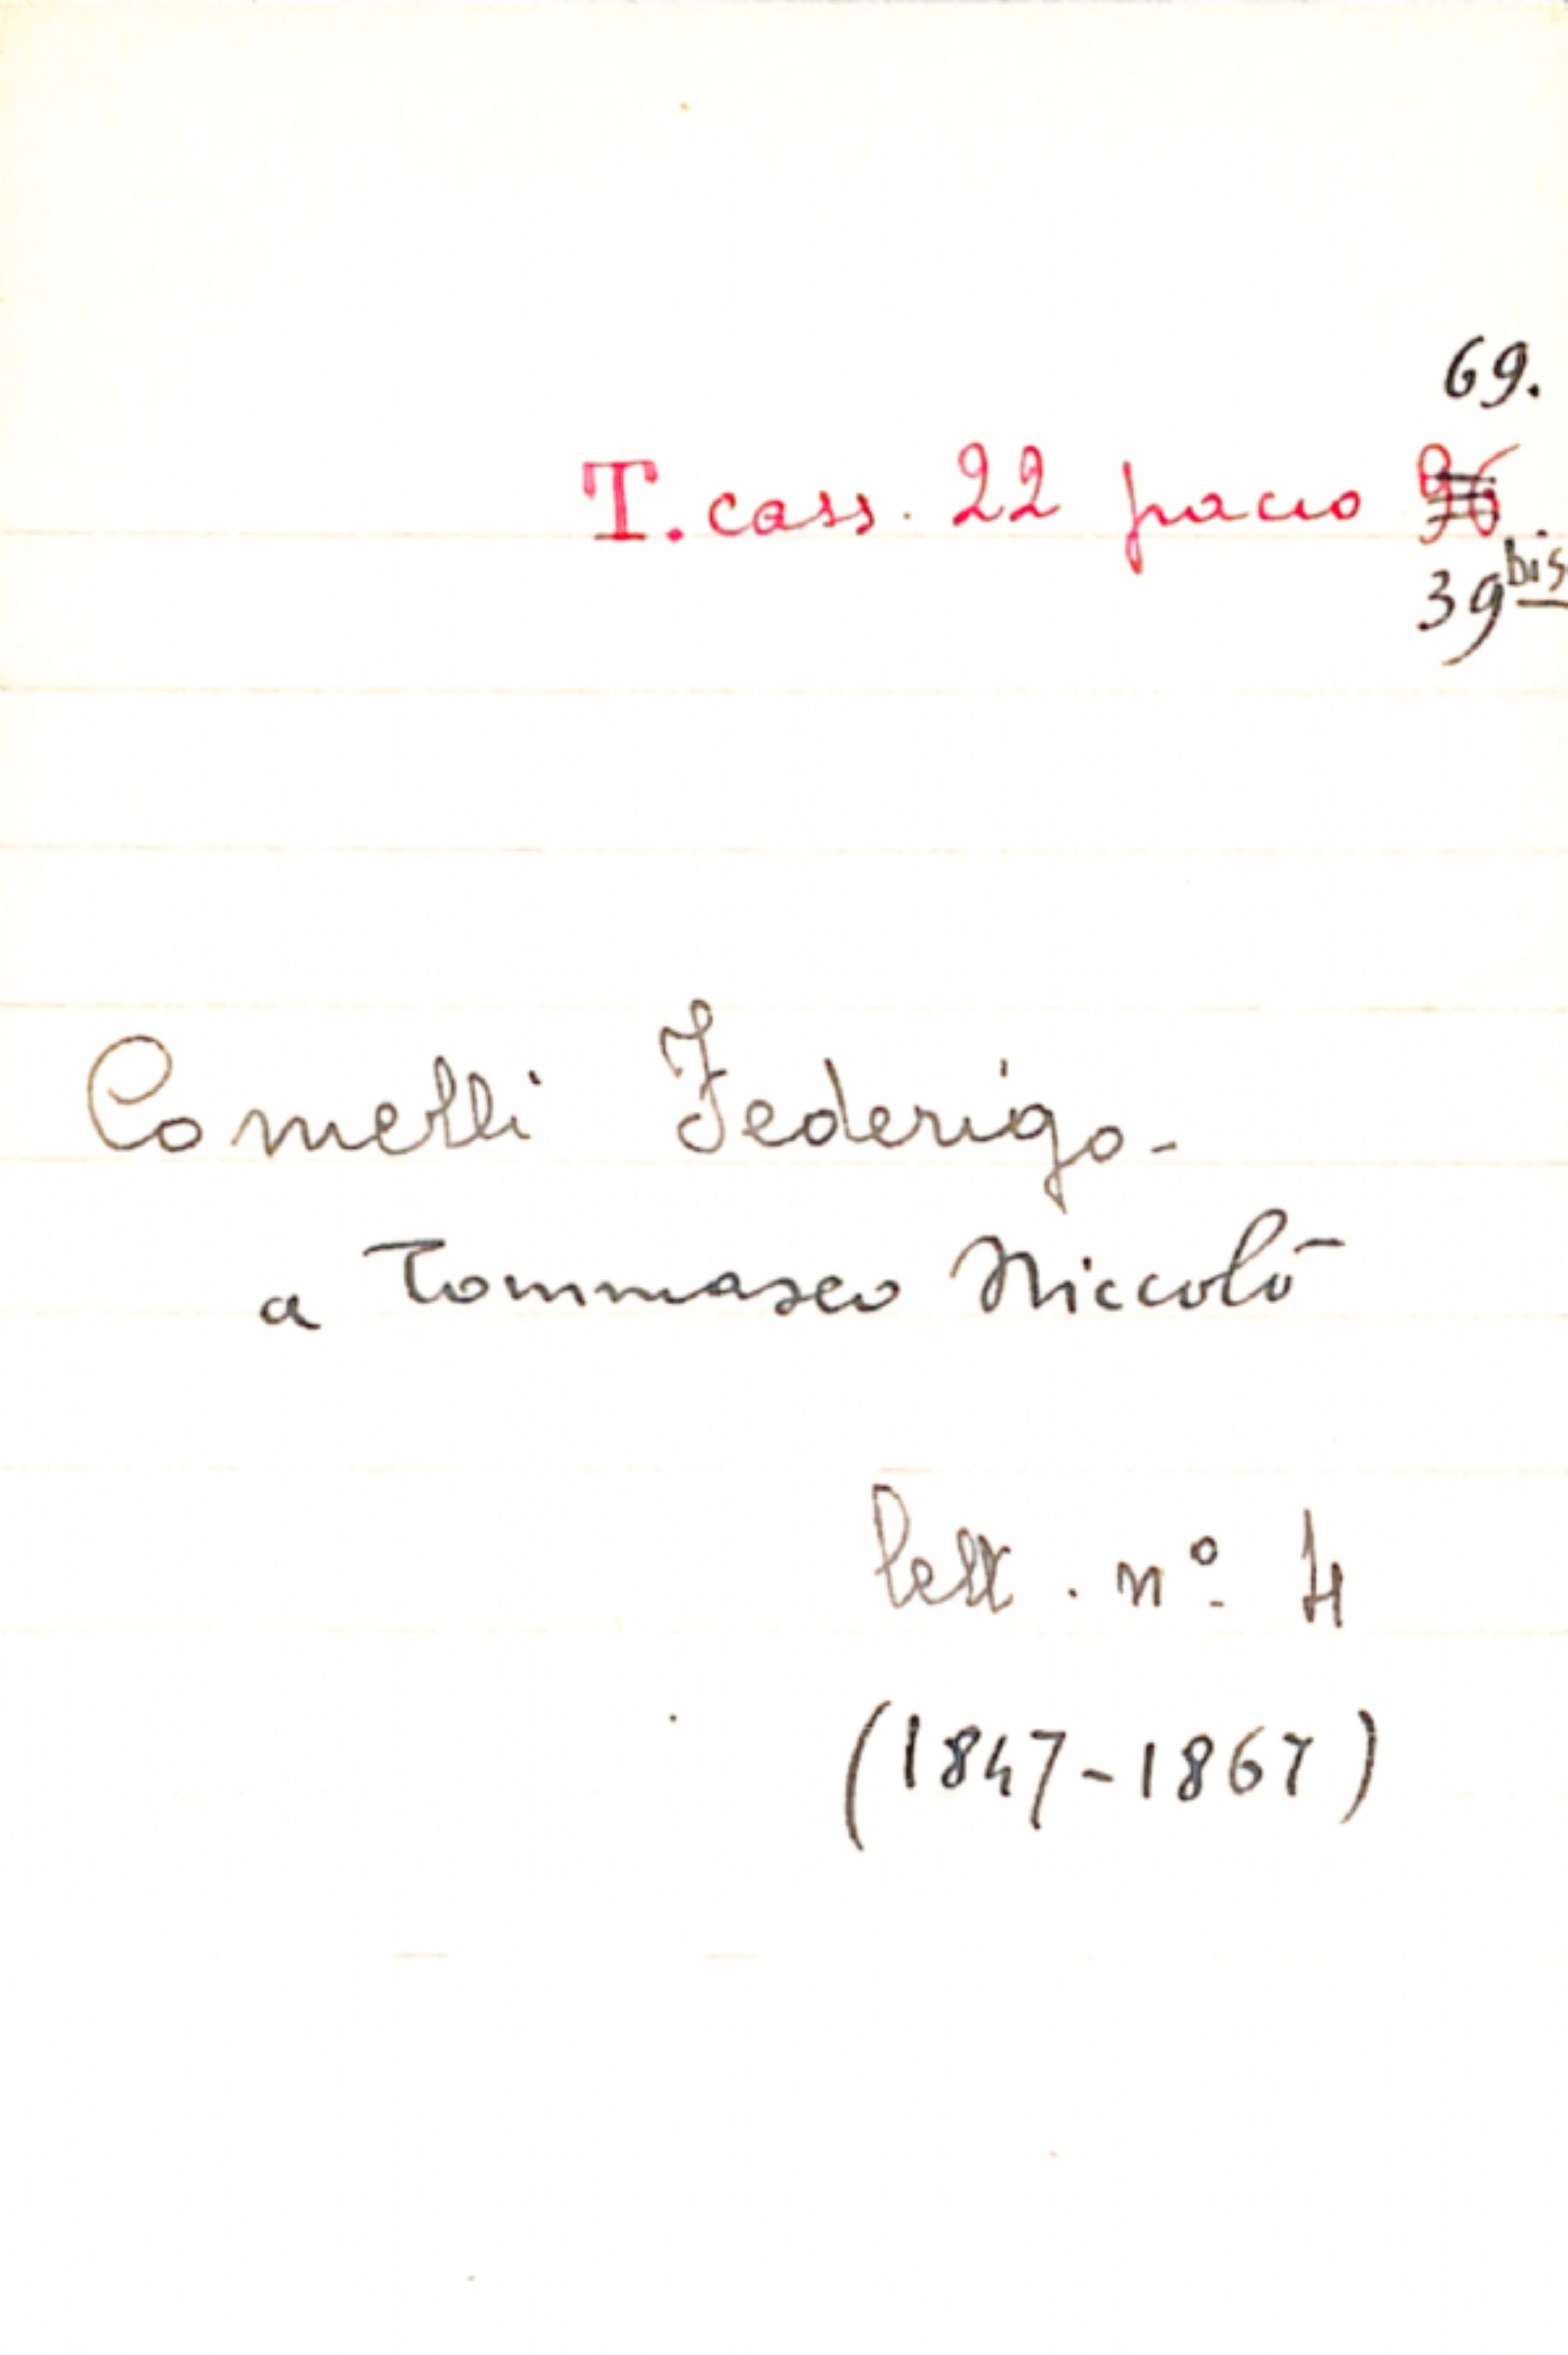 69.
T. cass. 22 pacco
39 bis
Comelli Federigo -
a Tommaseo Niccolò
lett. nº 4
(1847-1867)